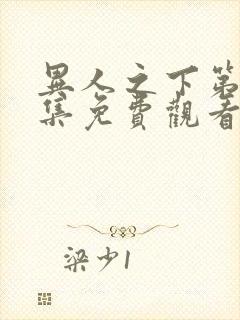 異人之下第
集免費觀看
梁少1